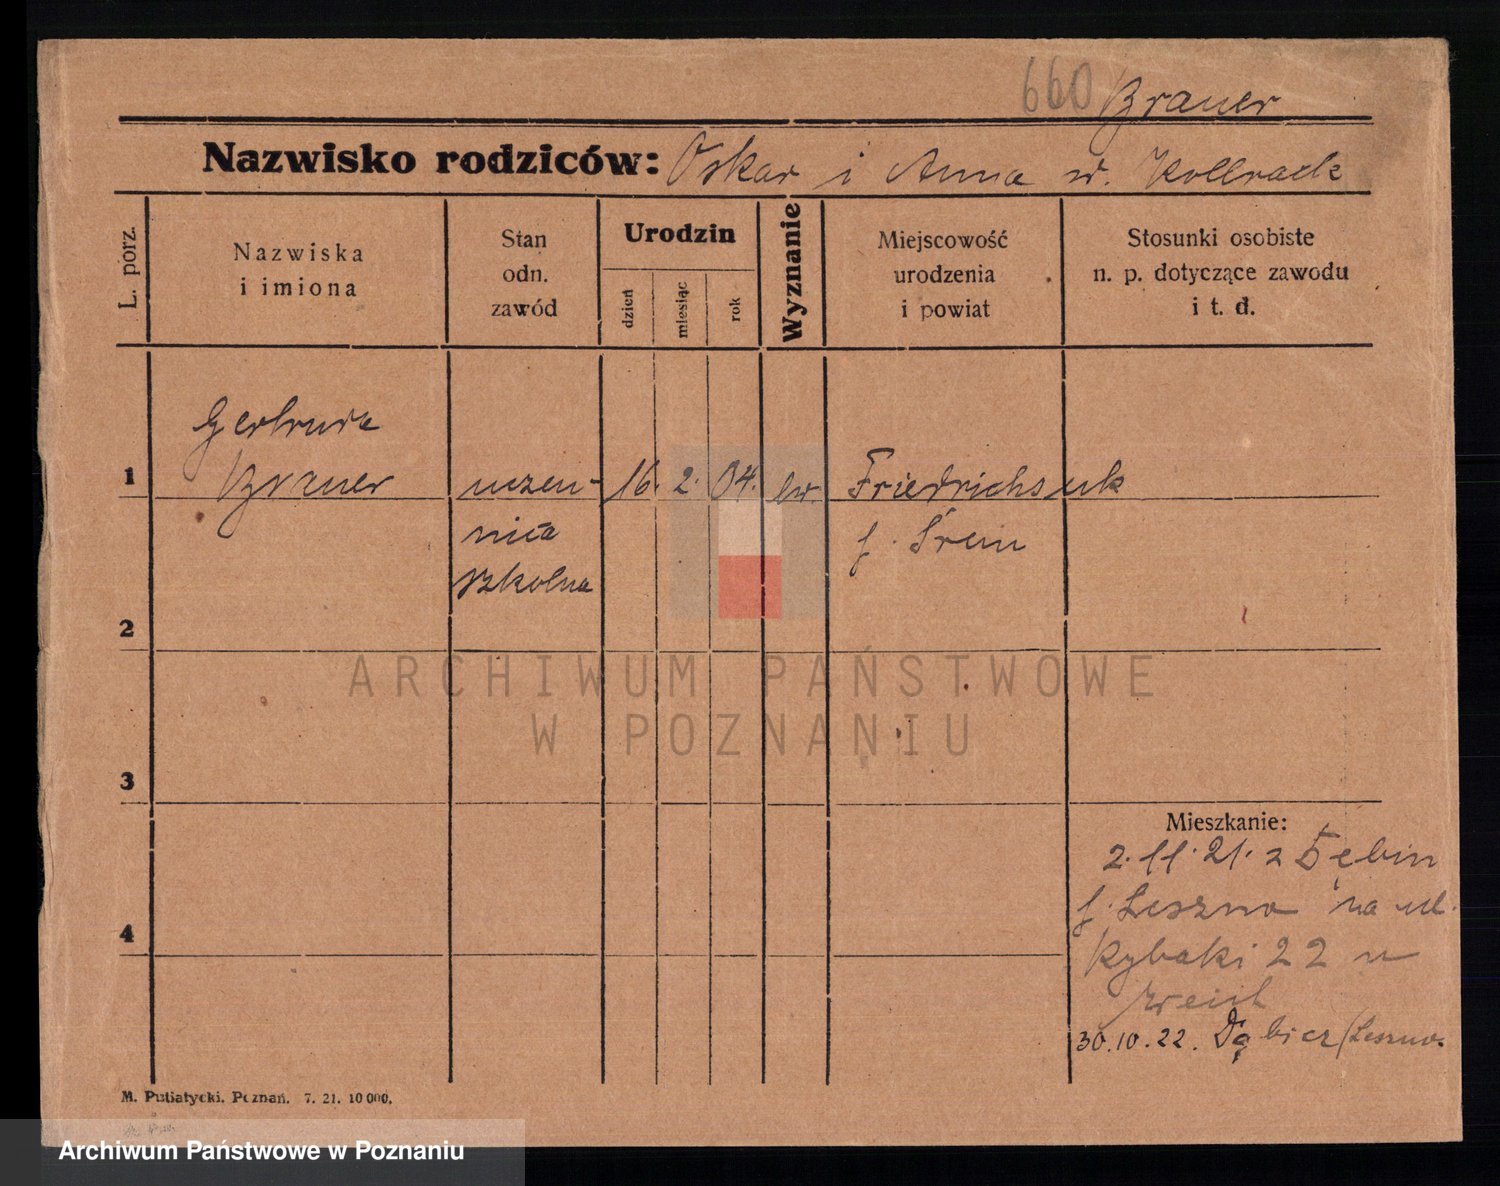 660 Brauer
Nazwisko rodziców: Oskar i Anna w. Kollrack
L. porz.
Nazwiska
i imiona
Stan
odn.
zawód
Urodzin
dzień
miesiąc
rok
Wyznanie
Miejscowość
urodzenia
i powiat
Stosunki osobiste
n. p. dotyczące zawodu
i t. d.
Gertruda
1 Brauer uczen- 16. 2. 04. ew. Friedrichsruh
nica
p. Śrem
szkolna
2
ARCHIWUM PAŃSTWOWE
W POZNANIU
3
Mieszkanie:
2.11.21. z
p. Leszno na ul.
4
Rybaki 22 u
30.10.22. Dąbicz/Leszno.
M. Putiatycki. Poznań. 7. 21. 10 000.
Archiwum Państwowe w Poznaniu